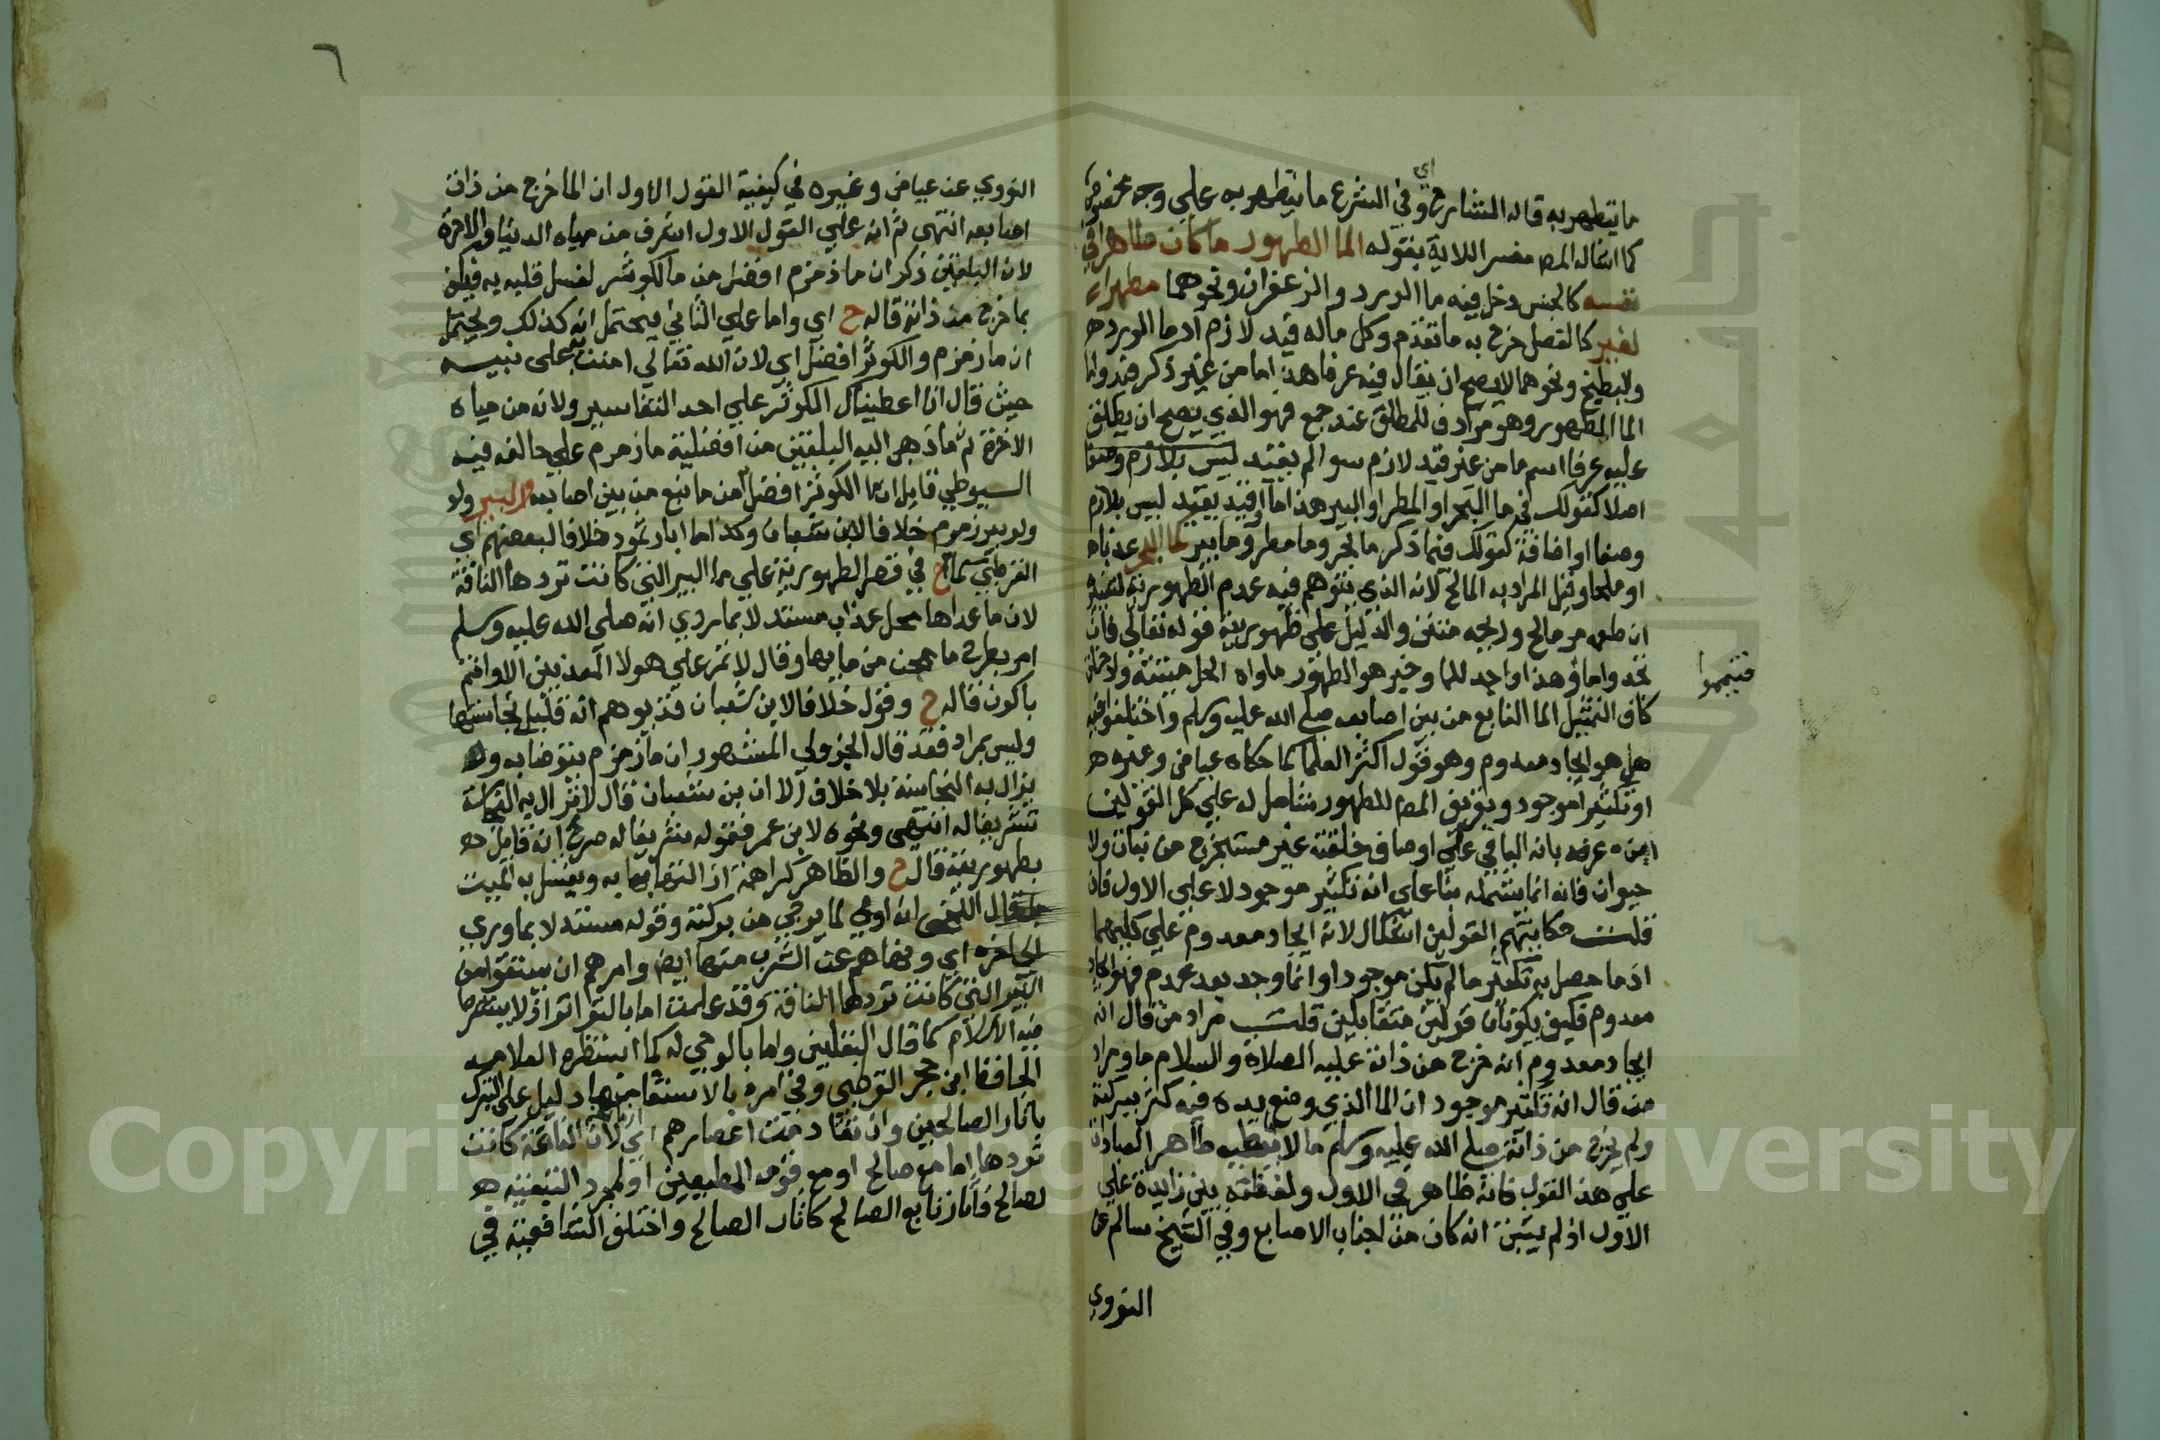 ما يتطهر به قاله الشارح وفي الشرع ما يتطهر به علي وجه مخصوص
كما اشار له المص مفسرا للاية بقوله الما الطهور ما كان طاهرا في
نفسه كالجنس دخل فيه ما الورد والزعفران ونحوهما مطهرا
لغيره كالفصل خرج به ما تقدم وكل ما له قيد لازم اذ ما الورد
والبطيخ ونحوهما لا يصح ان يقال فيه عرفا هذا ما من غير ذكر قيد واما
الما الطهور وهو مرادف للمطلق عند جمع فهو الذي يصح ان يطلق
عليه عرفا اسم ما من غير قيد لازم سوا لم يقيد ليس بلازم وصفا
اصلا كقولك في ما البحر او المطر او البير هذا ما او قيد بقيد ليس بلازم
وصفا او اضافة كقولك فيما ذكر ما بحر وما مطر وما بير كما البحر عذبا
او ملحا وقيل المراد به المالح لانه الذي يتوهم فيه عدم الطهورية لتغيره
ان طعمه مر مالح وريحه منتن والدليل على طهوريته قوله تعالي فان
فتيمموا
تجدوا ماؤ هذا واجد للما وخبر هو الطهور ماواه الحل ميتته
كاف التمثيل الما النابع من بين اصابعه صلي الله عليه وسلم واختلفوا فيه
هل هو ايجاد معدوم وهو قول اكثر العلما كما حكاه عياض وغيره
او تكثير موجود وتعريف المص للطهور شامل له علي كل القولين
عرفه بانه الباقي علي اوصاف خلقته غير مستخرج من نبات ولا
حيوان فانه انما يشمله بنا على انه تكثير موجود لا علي الاول فان
قلت حكايتهم القولين اشكال لانه ايجاد معدوم علي كليهما
اذ ما حصل به تكثير ما لم يكن موجودا وانما وجد بعد عدم فهو ايجاد
معدوم فكيف يكونان قولين متقابلين قلت مراد من قال انه
ايجاد معدوم انه خرج من ذاته عليه الصلاة والسلام ما ومراد
من قال انه تكثير موجود ان الما الذي وضع يده فيه كثر ببركته
ولم يخرج من ذاته صلي الله عليه وسلم ما لا
علي هذا القول فانه ظاهر في الاول ولفظة بين زايدة علي
الاول اذ لم يتبين انه كان من اجناب الاصابع وفي الشيخ سالم عن
النووي
٦
النووي عن عياض وغيره في كيفية القول الاول ان الما خرج من ذات
اصابعه انتهى ثم انه علي القول الاول اشرف من مياه الدنيا والاخرة
لان البلقيني ذكر ان ما زمزم افضل من ما الكوثر لغسل قلبه به فيكف
بما خرج من ذاته قاله ح اي واما علي الثاني فيحتمل انه كذلك ويحتمل
ان ما زمزم والكوثر افضل اي لان الله تعالي امتن به على نبيه
حيث قال انا اعطيناك الكوثر علي احد التفاسير ولانه من مياه
الاخرة ثم ما ذهب اليه البلقيني من افضلية ما زمزم علي خالفه فيه
السيوطي قايلا ان ما الكوثر افضل من ما نبع من بين اصابعه والبير ولو
ولو بير زمزم خلافا لابن شعبان وكذا ما ابار ثمود خلافا لبعضهم اي
القرطبي كما في ح في قصر الطهورية علي ما البير التي كانت تردها الناقة
لان ما عداها محل عذاب مستدلا بما روي انه صلي الله عليه وسلم
امر بطرح ما عجن من ما بيرها وقال لا تمر علي هولا المعذبين الا وانتم
باكون قاله ح وقول خلافا لابن شعبان قد يوهم انه قيل بنجاستها
وليس بمراد فقد قال الجزولي المشهور ان ما زمزم يتوضا به و
يزال به النجاسة بلا خلاف الا ان بن شعبان قال لا تزال به النجاسة
تشريفا له انتهى ونحوه لابن عمر فقوله تشريفا له صريح انه قايل
بطهوريته قال ح والظاهر كراهة ازالتها به ويغسل به الميت
قال اللخمي انه اولي لما يرجي من بركته وقوله مستدلا بما وري
الي اخره اي ونهاهم عن الشرب منها ايض وامرهم ان يستقوا من
البير التي كانت تردها الناقة وقد علمت اما بالتواتر اذ لا يشترط
فيه الاسلام كما قال البلقيني واما بالوحي له كما استظهره العلامه
الحافظ ابن حجر القرطبي وفي امره بالاستقا منها دليل على التبرك
باثار الصالحين وان تقادمت اعصارهم اي لان الناقة كانت
تردها اما مع صالح او مع قومه المطيعين او لمجرد التبعية
لصالح فاثار تابع الصالح كاثار الصالح واختلف الشافعية في